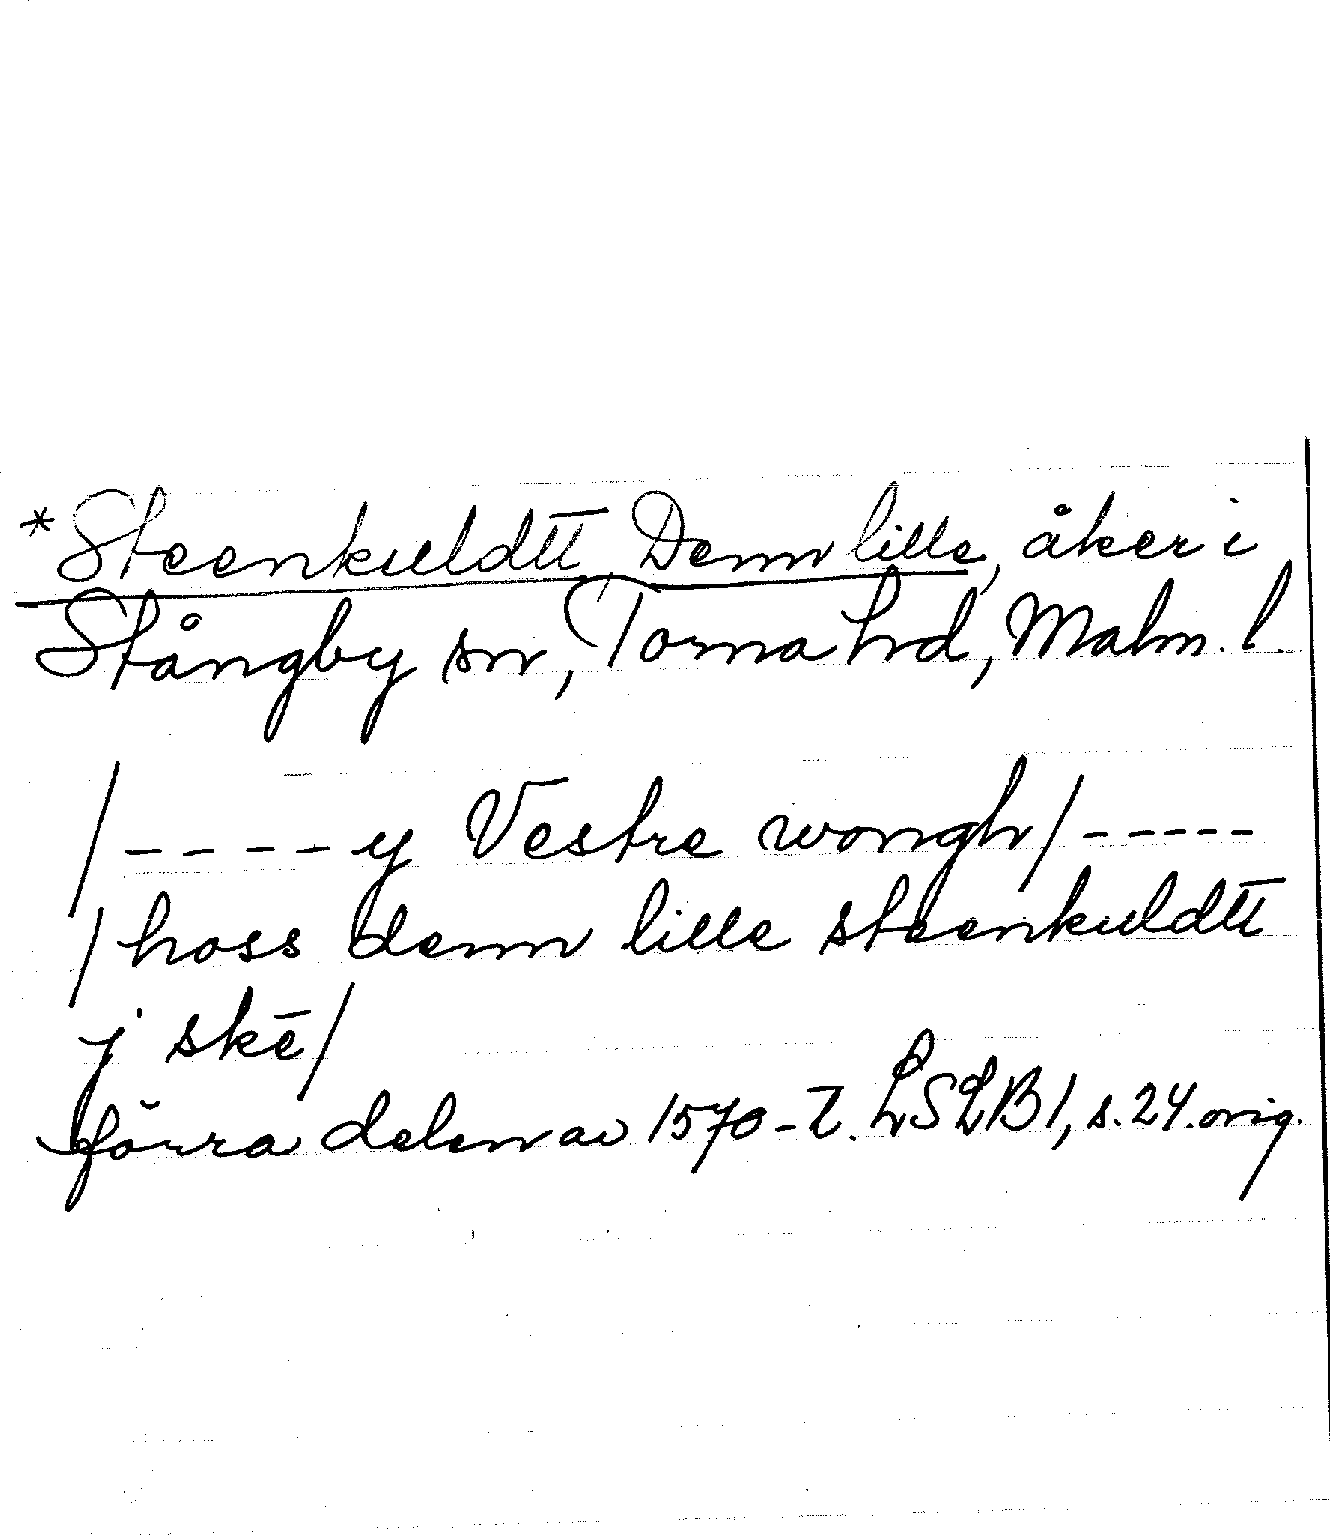 *Steenkuldtt, Denn lille, åker i
Stångby sn, Torna hd, Malm. l.
/----y Vestre wongh/-----
/hoss denn lille steenkuldtt
j skē/
förra delen av 1570-t. LSLB 1, s. 24. orig.